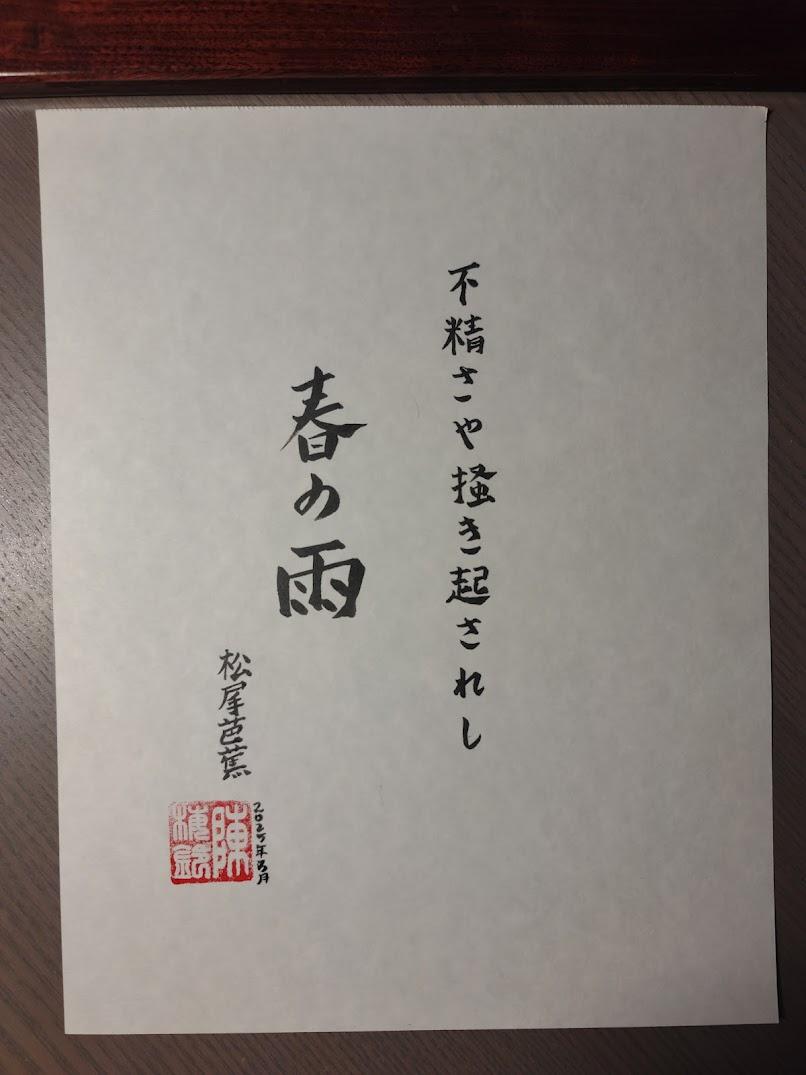 不精さや掻き起されし
春の雨
松尾芭蕉
2025年3月